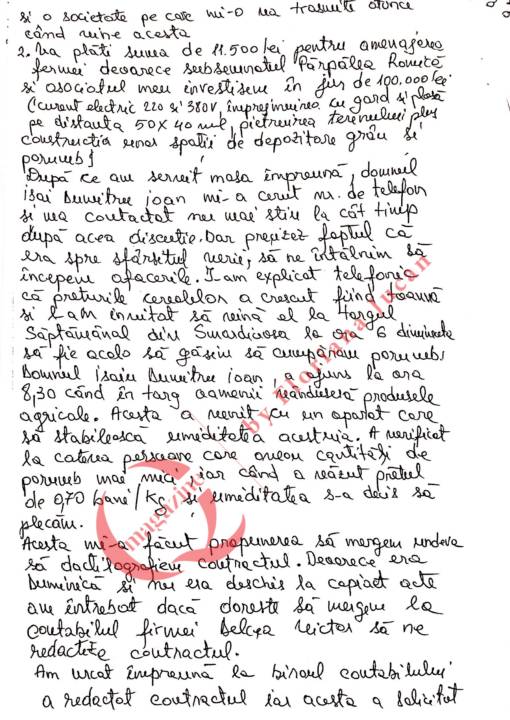 și o societate pe care mi-o va trasmite atunci
când vine acesta
2. Va plăti suma de 11.500 lei pentru amenajarea
fermei deoarece subsemnatul Părpălea Romică
și asociatul meu investisem în jur de 100.000 lei
(curent electric 220 și 380V, împrejmuirea cu gard și plasă
pe distanța 50 X 40 ml, pietruirea terenului plus
construcția unor spații de depozitare grâu și
porumb)
După ce am servit masa împreună, domnul
Isai Dumitru Ioan mi-a cerut nr. de telefon
și m-a contactat nu mai știu la cât timp
după acea discuție. Dar precizez faptul că
era spre sfârșitul verii, să ne întâlnim să
începem afacerile. I-am explicat telefonic
că prețurile cerealelor a crescut fiind toamnă
și l-am invitat să vină el la Târgul
Săptămânal din Smârdioasa la ora 6 dimineața
să fie acolo să găsim să cumpărăm porumb.
Domnul Isaiu Dumitru Ioan, a ajuns la ora
8,30 când în targ oamenii vânduseră produsele
agricole. Acesta a venit cu un aparat care
să stabilească umiditatea acestuia. A verificat
la câteva persoane care aveau cantități de
porumb mai mici, iar când a văzut prețul
de 0,70 bani/kg și umiditatea s-a decis să
plecăm.
Acesta mi-a făcut propunerea să mergem undeva
să dactilografiem contractul. Deoarece era
Duminică și nu era deschis la copiat acte
am întrebat dacă dorește să mergem la
contabilul firmei Belcea Victor să ne
redacteze contractul.
Am urcat împreună la biroul contabilului
a redactat contractul iar acesta a solicitat
magazinc
by Floriana Jucan